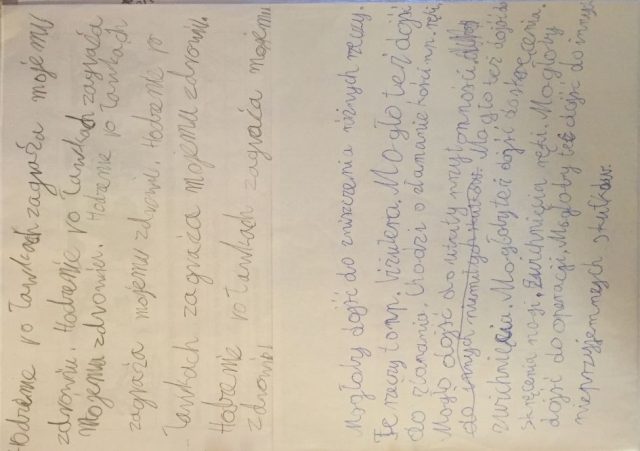 Hodzenie po ławkach zagraża mojemu
zdrowiu. Hodzenie po ławkach zagraża
mojemu zdrowiu. Hodzenie po ławkach
zagraża mojemu zdrowiu. Hodzenie po
ławkach zagraża mojemu zdrowiu.
Hodzenie po ławkach zagraża mojemu
zdrowiu
Mogłoby dojść do zniszczenia różnych rzeczy.
Te rzeczy to np. Mogło też dojść
do złamania. Chodzi o złamanie kości np. ręki.
Mogło dojść do utraty przytomności
do innych skutków. Mogło też dojść do
zwichnięcia. Mogłoby też dojść do skręcenia.
skręcenia nogi, zwichnięcia ręki. Mogłoby
dojść do operacji. Mogłoby też dojść do innych
nieprzyjemnych skutków.